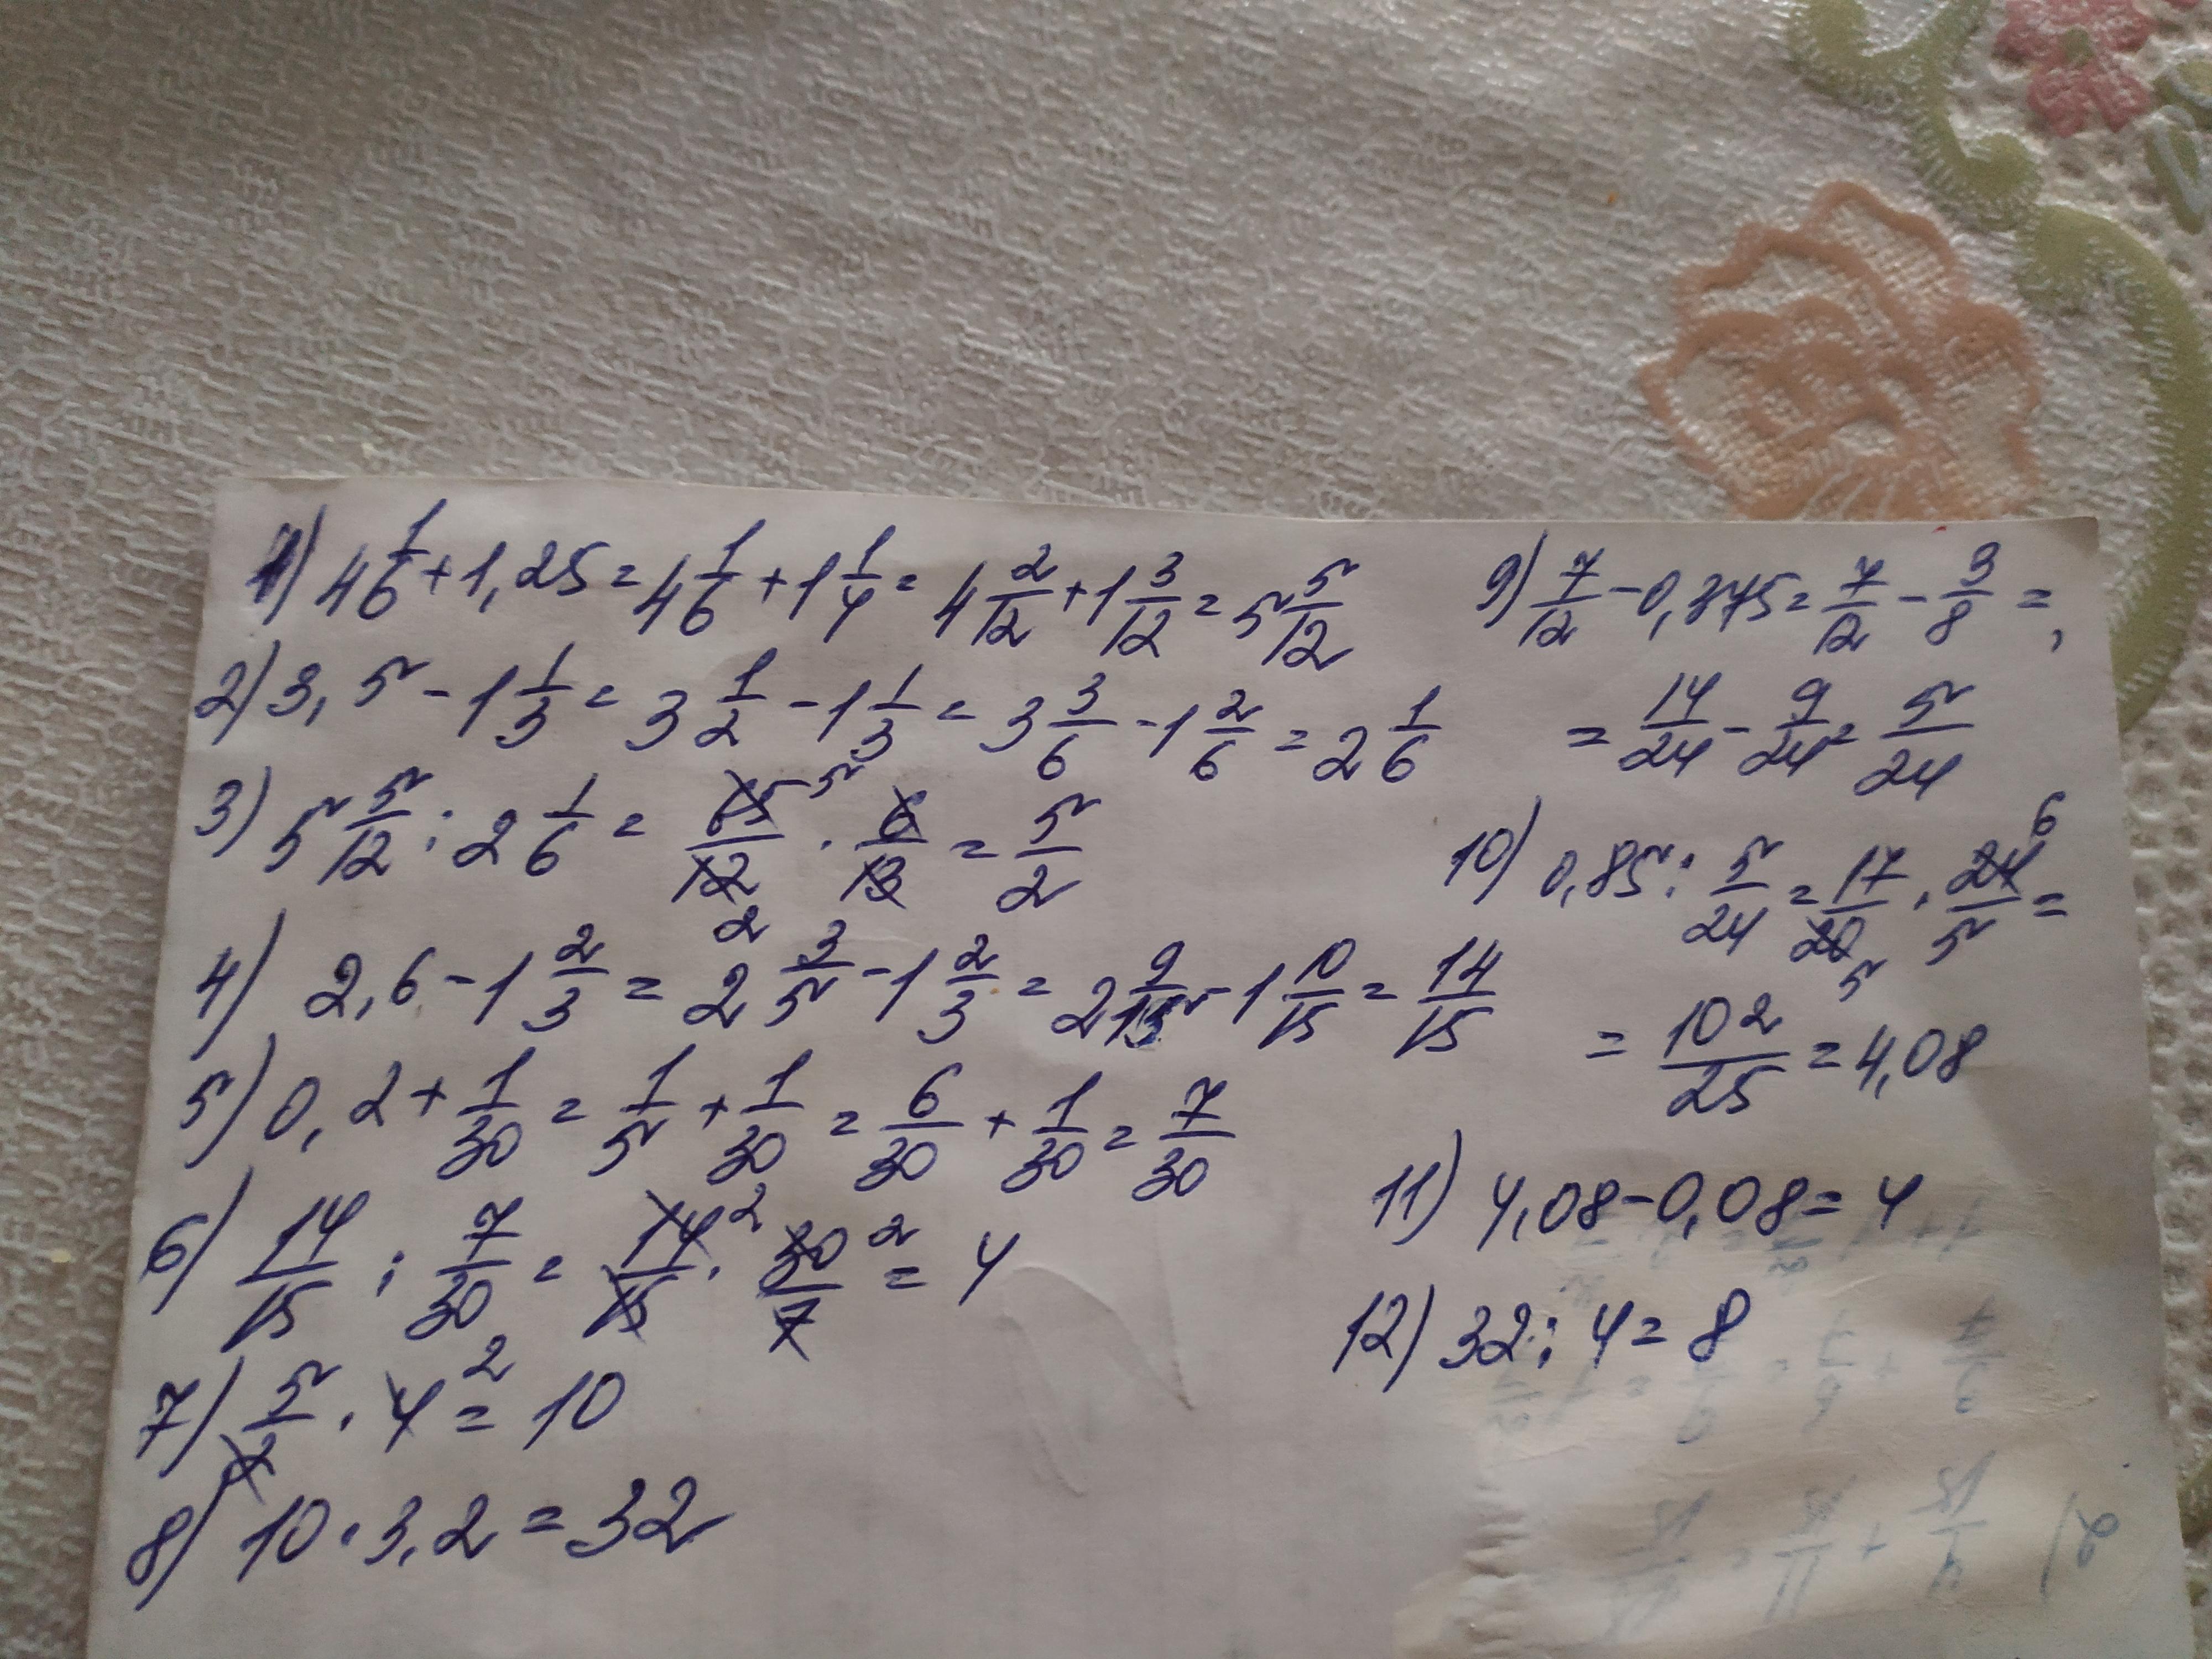 1) 4 1/6 + 1,25 = 4 1/6 + 1 1/4 = 4 2/12 + 1 3/12 = 5 5/12
2) 3,5 - 1 1/3 = 3 1/2 - 1 1/3 = 3 3/6 - 1 2/6 = 2 1/6
3) 5 5/12 : 2 1/6 = 65/12 · 6/13 = 5/2
5
2
4) 2,6 - 1 2/3 = 2 3/5 - 1 2/3 = 2 9/15 - 1 10/15 = 14/15
5) 0,2 + 1/30 = 1/5 + 1/30 = 6/30 + 1/30 = 7/30
6) 14/15 : 7/30 = 14/15 · 30/7 = 4
2 2
7) 5/2 · 4 = 10
2
8) 10 · 3,2 = 32
9) 7/12 - 0,375 = 7/12 - 3/8 =
= 14/24 - 9/24 = 5/24
10) 0,85 : 5/24 = 17/20 · 24/5 =
6
5
= 102/25 = 4,08
11) 4,08 - 0,08 = 4
12) 32 : 4 = 8